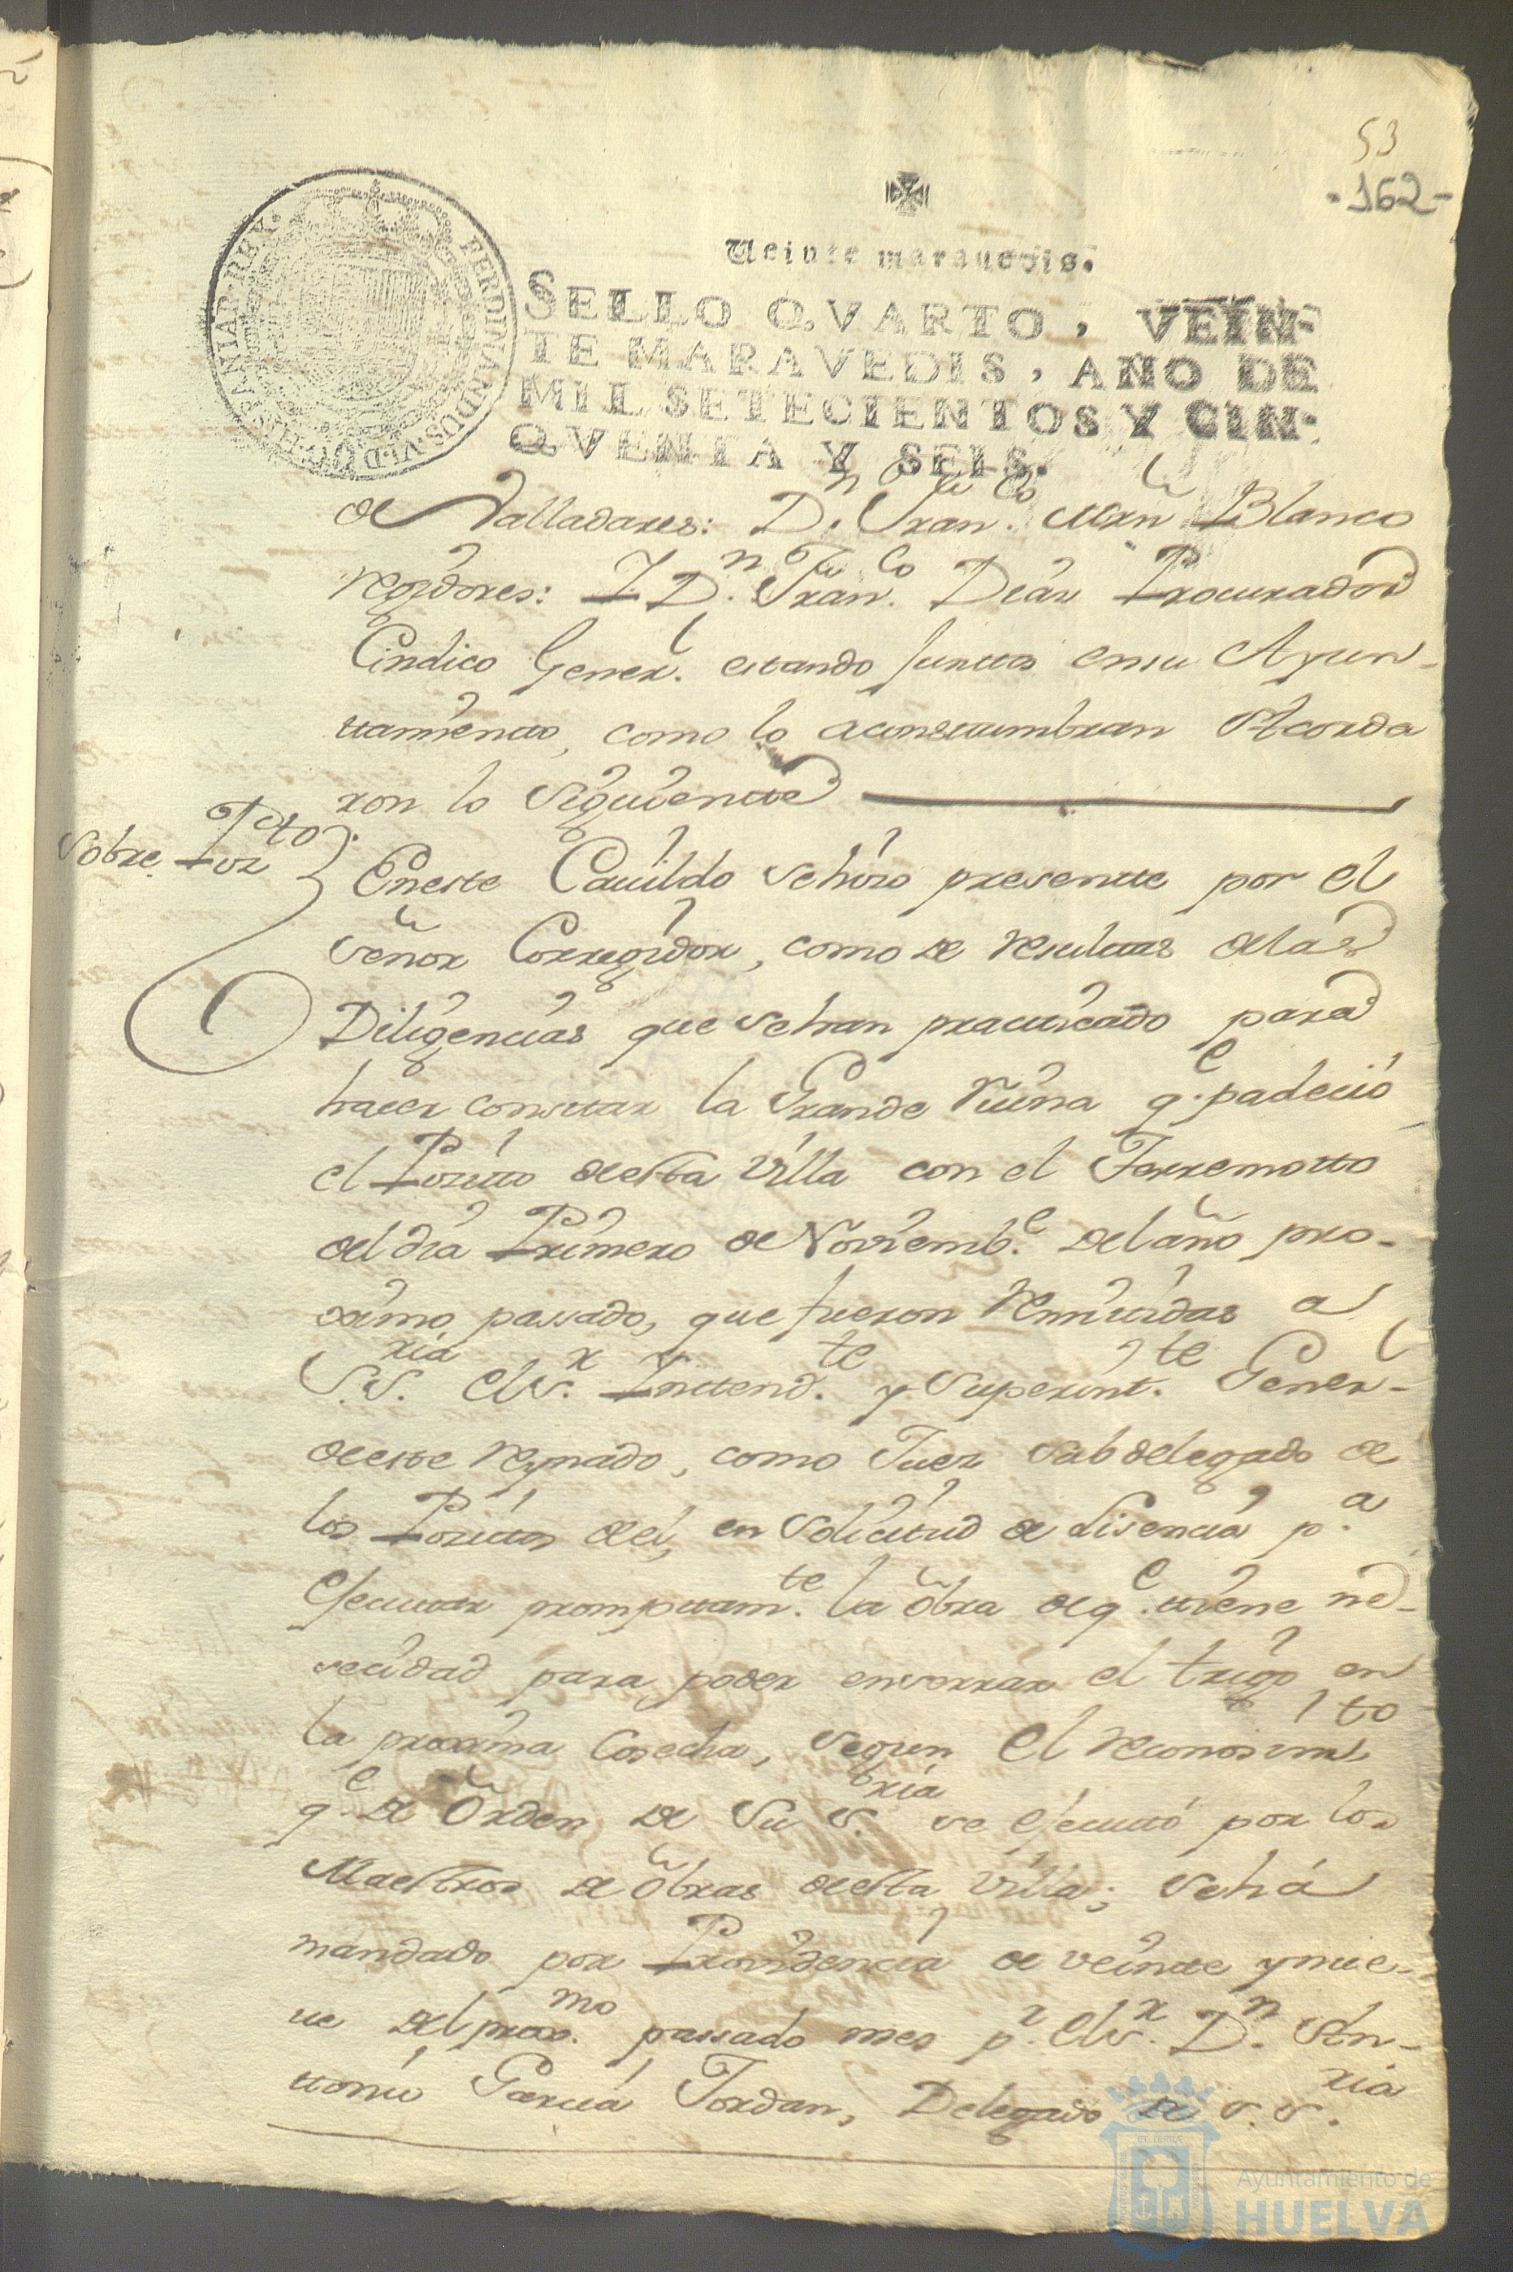 53
-162-
Veinte maravedis.
SELLO QVARTO, VEIN-
TE MARAVEDIS, AÑO DE
MIL SETECIENTOS Y CIN-
QVENTA Y SEIS.
FERDINANDUS.VI.D.G.HISPANIAR.REX.
de Valladares: Dn. Franco. Mrñ Blanco
regidores: Y Dn. Franco. Diaz Procurador
Cindico Generl. estando Junttos ensu Ayun-
ttamientto, como lo aconsttumbran Acorda
ron lo siguientte
Sobre Pozto.
Eneste Cavildo sehizo presentte por el
señor Corregidor, como de resulttas delas
Diligencias que sehan practticado para
hacer consttar la Grande Ruina qe. padeció
el Pozitto desta Villa con el Terremotto
del dia Primero de Noviembe. del año pro-
ximo passado, que fueron remitidas a
S.Sria. elsr. Inttendte. y Superintte. Generl
deeste reynado, como Juez Subdelegado de
los Pozitos del, en Solicitud de Lisencia pa.
efecuttar prompttamte. la obra deqe. ttiene ne-
secidad para poder enserrar el trigo en
la proxima Cosecha, segun el reconosimto
qe. de Orden de Su Sria. se efecuttó por los
Maestros de obras desta Villa; sehá
mandado por Providencia de veintte ynue-
ve del proxmo. passado mes pr. elsr. Dn. An-
ttonio Garcia Jordan, Delegado de S.Sria.
Ayuntamiento de
HUELVA